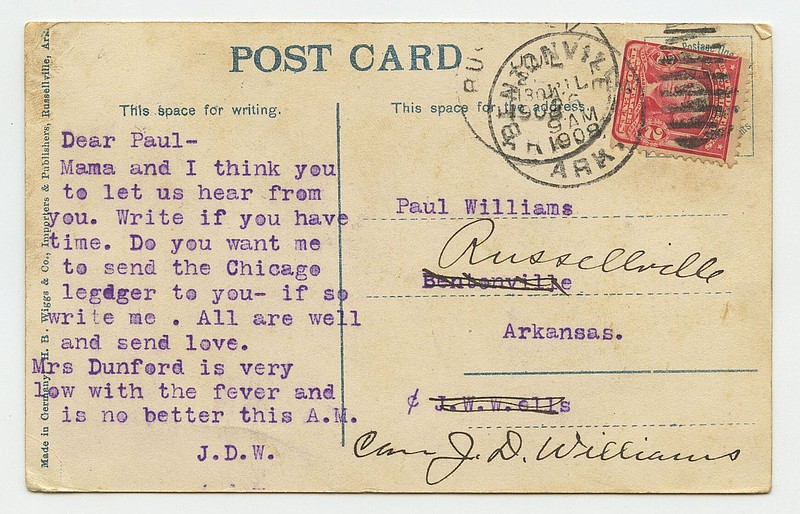 POST CARD
This space for writing.
This space for the address.
Dear Paul-
Mama and I think you
to let us hear from
you. Write if you have
time. Do you want me
to send the Chicago
legdger to you- if so
write me . All are well
and send love.
Mrs Dunford is very
low with the fever and
is no better this A.M.
J.D.W.
Made in Germany H. B. Wiggs & Co., Importers & Publishers, Russellville, Ark.
BENTONVILLE
9 AM
1909
ARK.
2
Paul Williams
Bentonville
Russellville
Arkansas.
¢ J.W.W.ells
Care J. D. Williams